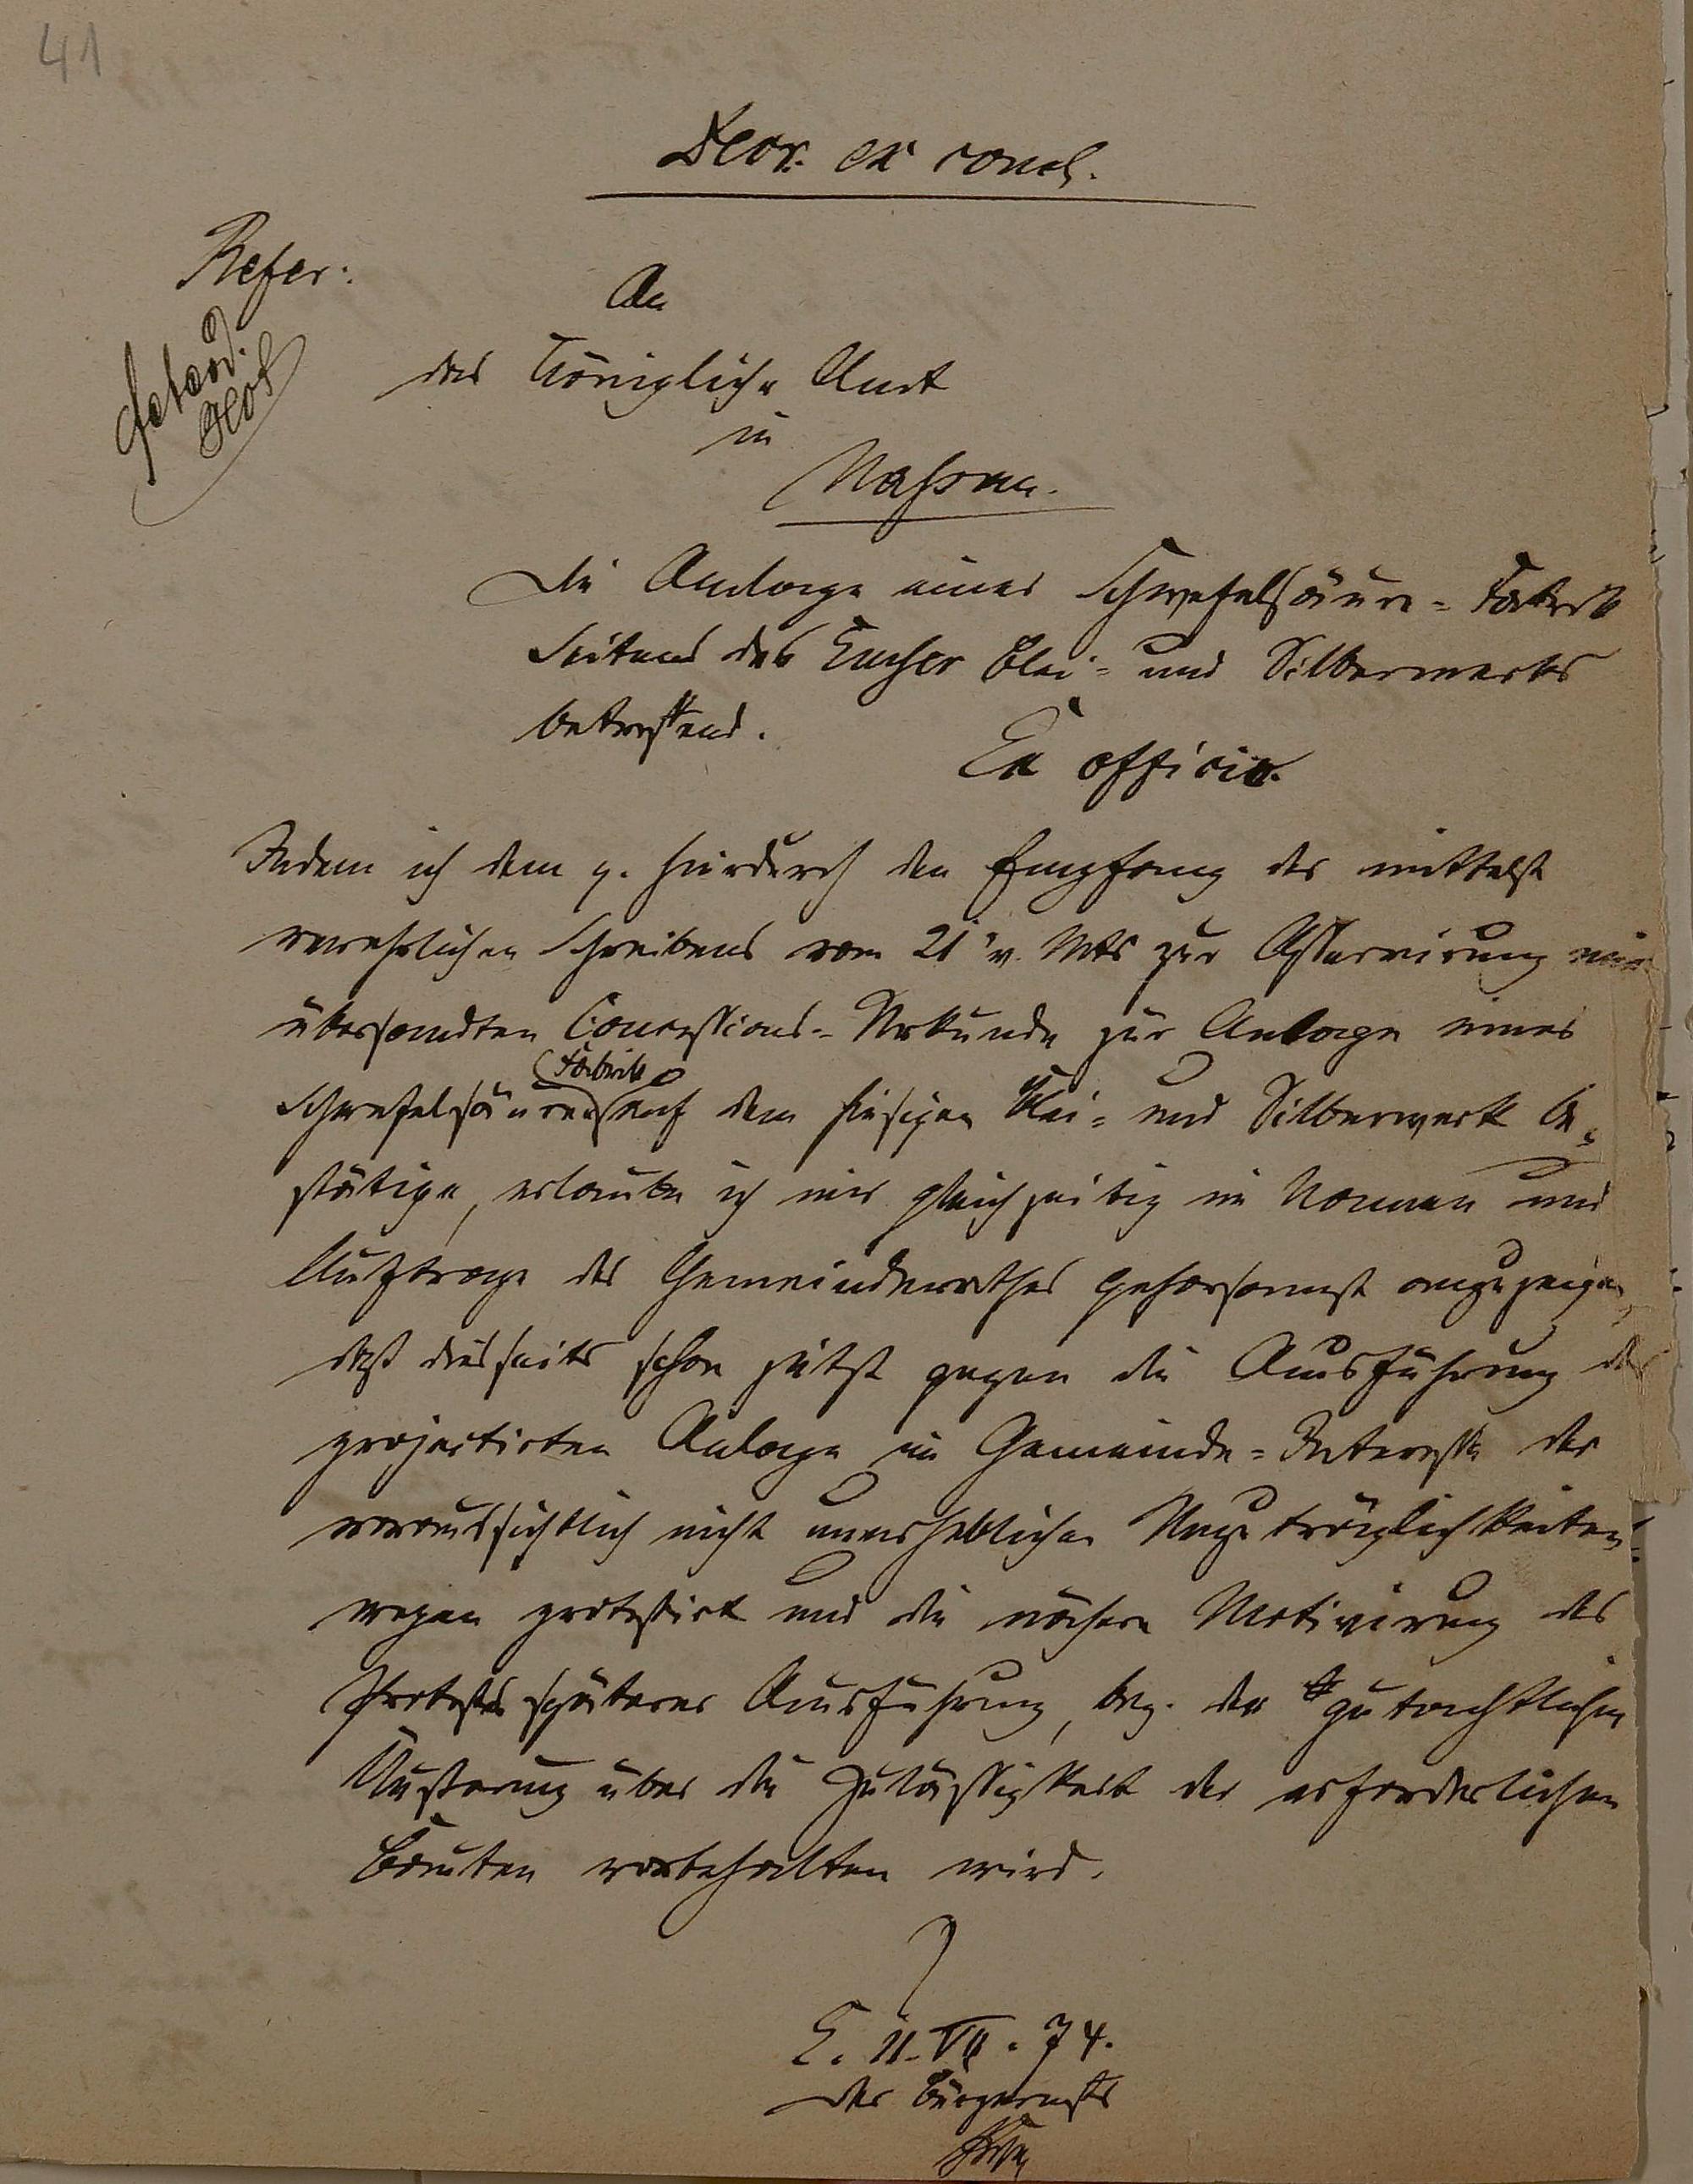 41
Decr. ex concl.
Refer:
An
das Königliche Amt
in
Nassau.
Die Anlage einer Schwefelsäure-Fabrik
Seitens des Emser Blei- und Silberwerks
betreffend.
Ex officio.
Indem ich dem p. hierdurch den Empfang der mittelst
verehrlichen Schreibens vom 21 v. Mts zur Asservirung mir
übersandten Concessions-Urkunde zur Anlage einer
Fabrik
Schwefelsäure auf dem hiesigen Blei- und Silberwerk be-
stätige, erlaube ich mir gleichzeitig im Namen und
Auftrage des Gemeinderathes gehorsamst anzuzeigen,
daß diesseits schon jetzt gegen die Ausführung der
projectirten Anlage im Gemeinde-Interesse der
voraussichtlich nicht unerheblichen Unzuträglichkeiten
wegen protestirt und die nähere Motivirung des
Protestes späterer Ausführung, bez. der gutachtlichen
Äußerung über die Zulässigkeit der erforderlichen
Bauten vorbehalten wird.
E. 11. VII. 74.
Der Bürgermstr